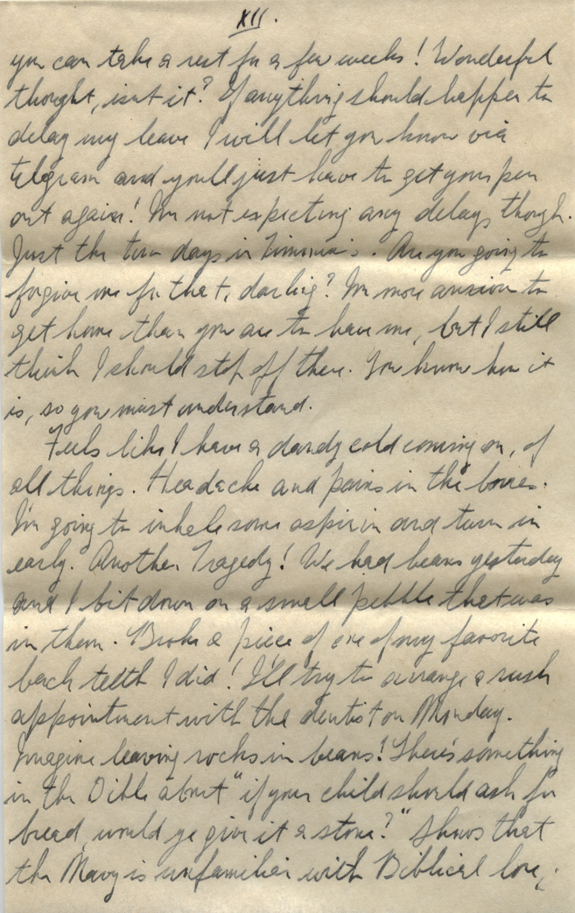 XII.
you can take a rest for a few weeks! Wonderful
thought, isnt it? If anything should happen to
delay my leave I will let you know via
telegram and you'll just have to get your pen
out again! I'm not expecting any delays though.
Just the two days in. Are you going to
forgive me for that, darling? I'm more anxious to
get home than you are to have me, but I still
think I should stop off there. You know how it
is, so you must understand.
Feels like I have a dandy cold coming on, of
all things. Headache and pains in the bones.
I'm going to inhale some aspirin and turn in
early. Another Tragedy! We had beans yesterday
and I bit down on a small pebble that was
in them. Broke a piece of one of my favorite
back teeth I did! I'll try to arrange a rush
appointment with the dentist on Monday.
Imagine leaving rocks in beans! There's something
in the Bible about "if your child should ask for
bread, would ye give it a stone?" Shows that
the Navy is unfamiliar with Biblical lore,